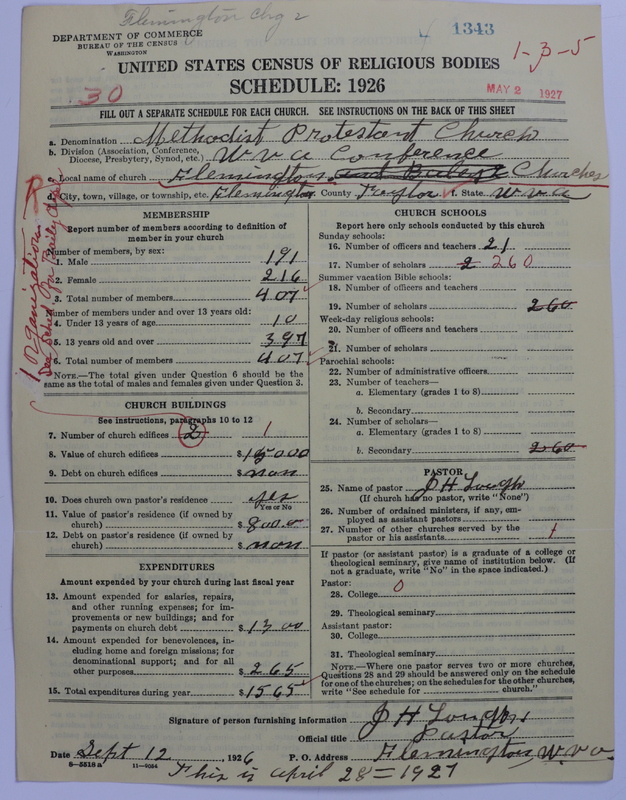 Flemington Chg 2
DEPARTMENT OF COMMERCE
BUREAU OF THE CENSUS
WASHINGTON
1343
1-3-5
UNITED STATES CENSUS OF RELIGIOUS BODIES
SCHEDULE: 1926
30
MAY 2 1927
FILL OUT A SEPARATE SCHEDULE FOR EACH CHURCH. SEE INSTRUCTIONS ON THE BACK OF THIS SHEET
a. Denomination Methodist Protestant Church
b. Division (Association, Conference, Diocese, Presbytery, Synod, etc.) W Va Conference
c. Local name of church Flemington and Bailey Churches
d. City, town, village, or township, etc. Flemington e. County Taylor f. State W Va
1 Organization
See Sched. for Bailey Chapel
MEMBERSHIP
Report number of members according to definition of member in your church
Number of members, by sex:
1. Male 191
2. Female 216
3. Total number of members 407
Number of members under and over 13 years old:
4. Under 13 years of age 10
5. 13 years old and over 397
6. Total number of members 407
NOTE.—The total given under Question 6 should be the same as the total of males and females given under Question 3.
CHURCH BUILDINGS
See instructions, paragraphs 10 to 12
7. Number of church edifices 2 1
8. Value of church edifices $
9. Debt on church edifices $ non
10. Does church own pastor's residence yes
Yes or No
11. Value of pastor's residence (if owned by church) $
12. Debt on pastor's residence (if owned by church) $ non
EXPENDITURES
Amount expended by your church during last fiscal year
13. Amount expended for salaries, repairs, and other running expenses; for improvements or new buildings; and for payments on church debt $ 1300
14. Amount expended for benevolences, including home and foreign missions; for denominational support; and for all other purposes $ 265
15. Total expenditures during year $ 1565
CHURCH SCHOOLS
Report here only schools conducted by this church
Sunday schools:
16. Number of officers and teachers 21
17. Number of scholars 2 260
Summer vacation Bible schools:
18. Number of officers and teachers
19. Number of scholars 260
Week-day religious schools:
20. Number of officers and teachers
21. Number of scholars
Parochial schools:
22. Number of administrative officers
23. Number of teachers—
a. Elementary (grades 1 to 8)
b. Secondary
24. Number of scholars—
a. Elementary (grades 1 to 8)
b. Secondary 260
PASTOR
25. Name of pastor J H Lough
(If church has no pastor, write "None")
26. Number of ordained ministers, if any, employed as assistant pastors
27. Number of other churches served by the pastor or his assistants 1
If pastor (or assistant pastor) is a graduate of a college or theological seminary, give name of institution below. (If not a graduate, write "No" in the space indicated.)
Pastor: 0
28. College
29. Theological seminary
Assistant pastor:
30. College
31. Theological seminary
NOTE.—Where one pastor serves two or more churches, Questions 28 and 29 should be answered only on the schedule for one of the churches; on the schedules for the other churches, write "See schedule for church."
Signature of person furnishing information J H Lough
Official title Pastor
Date Sept 12, 1926 P. O. Address Flemington W. Va
8-5518 a 11-9054
This is April 28 = 1927